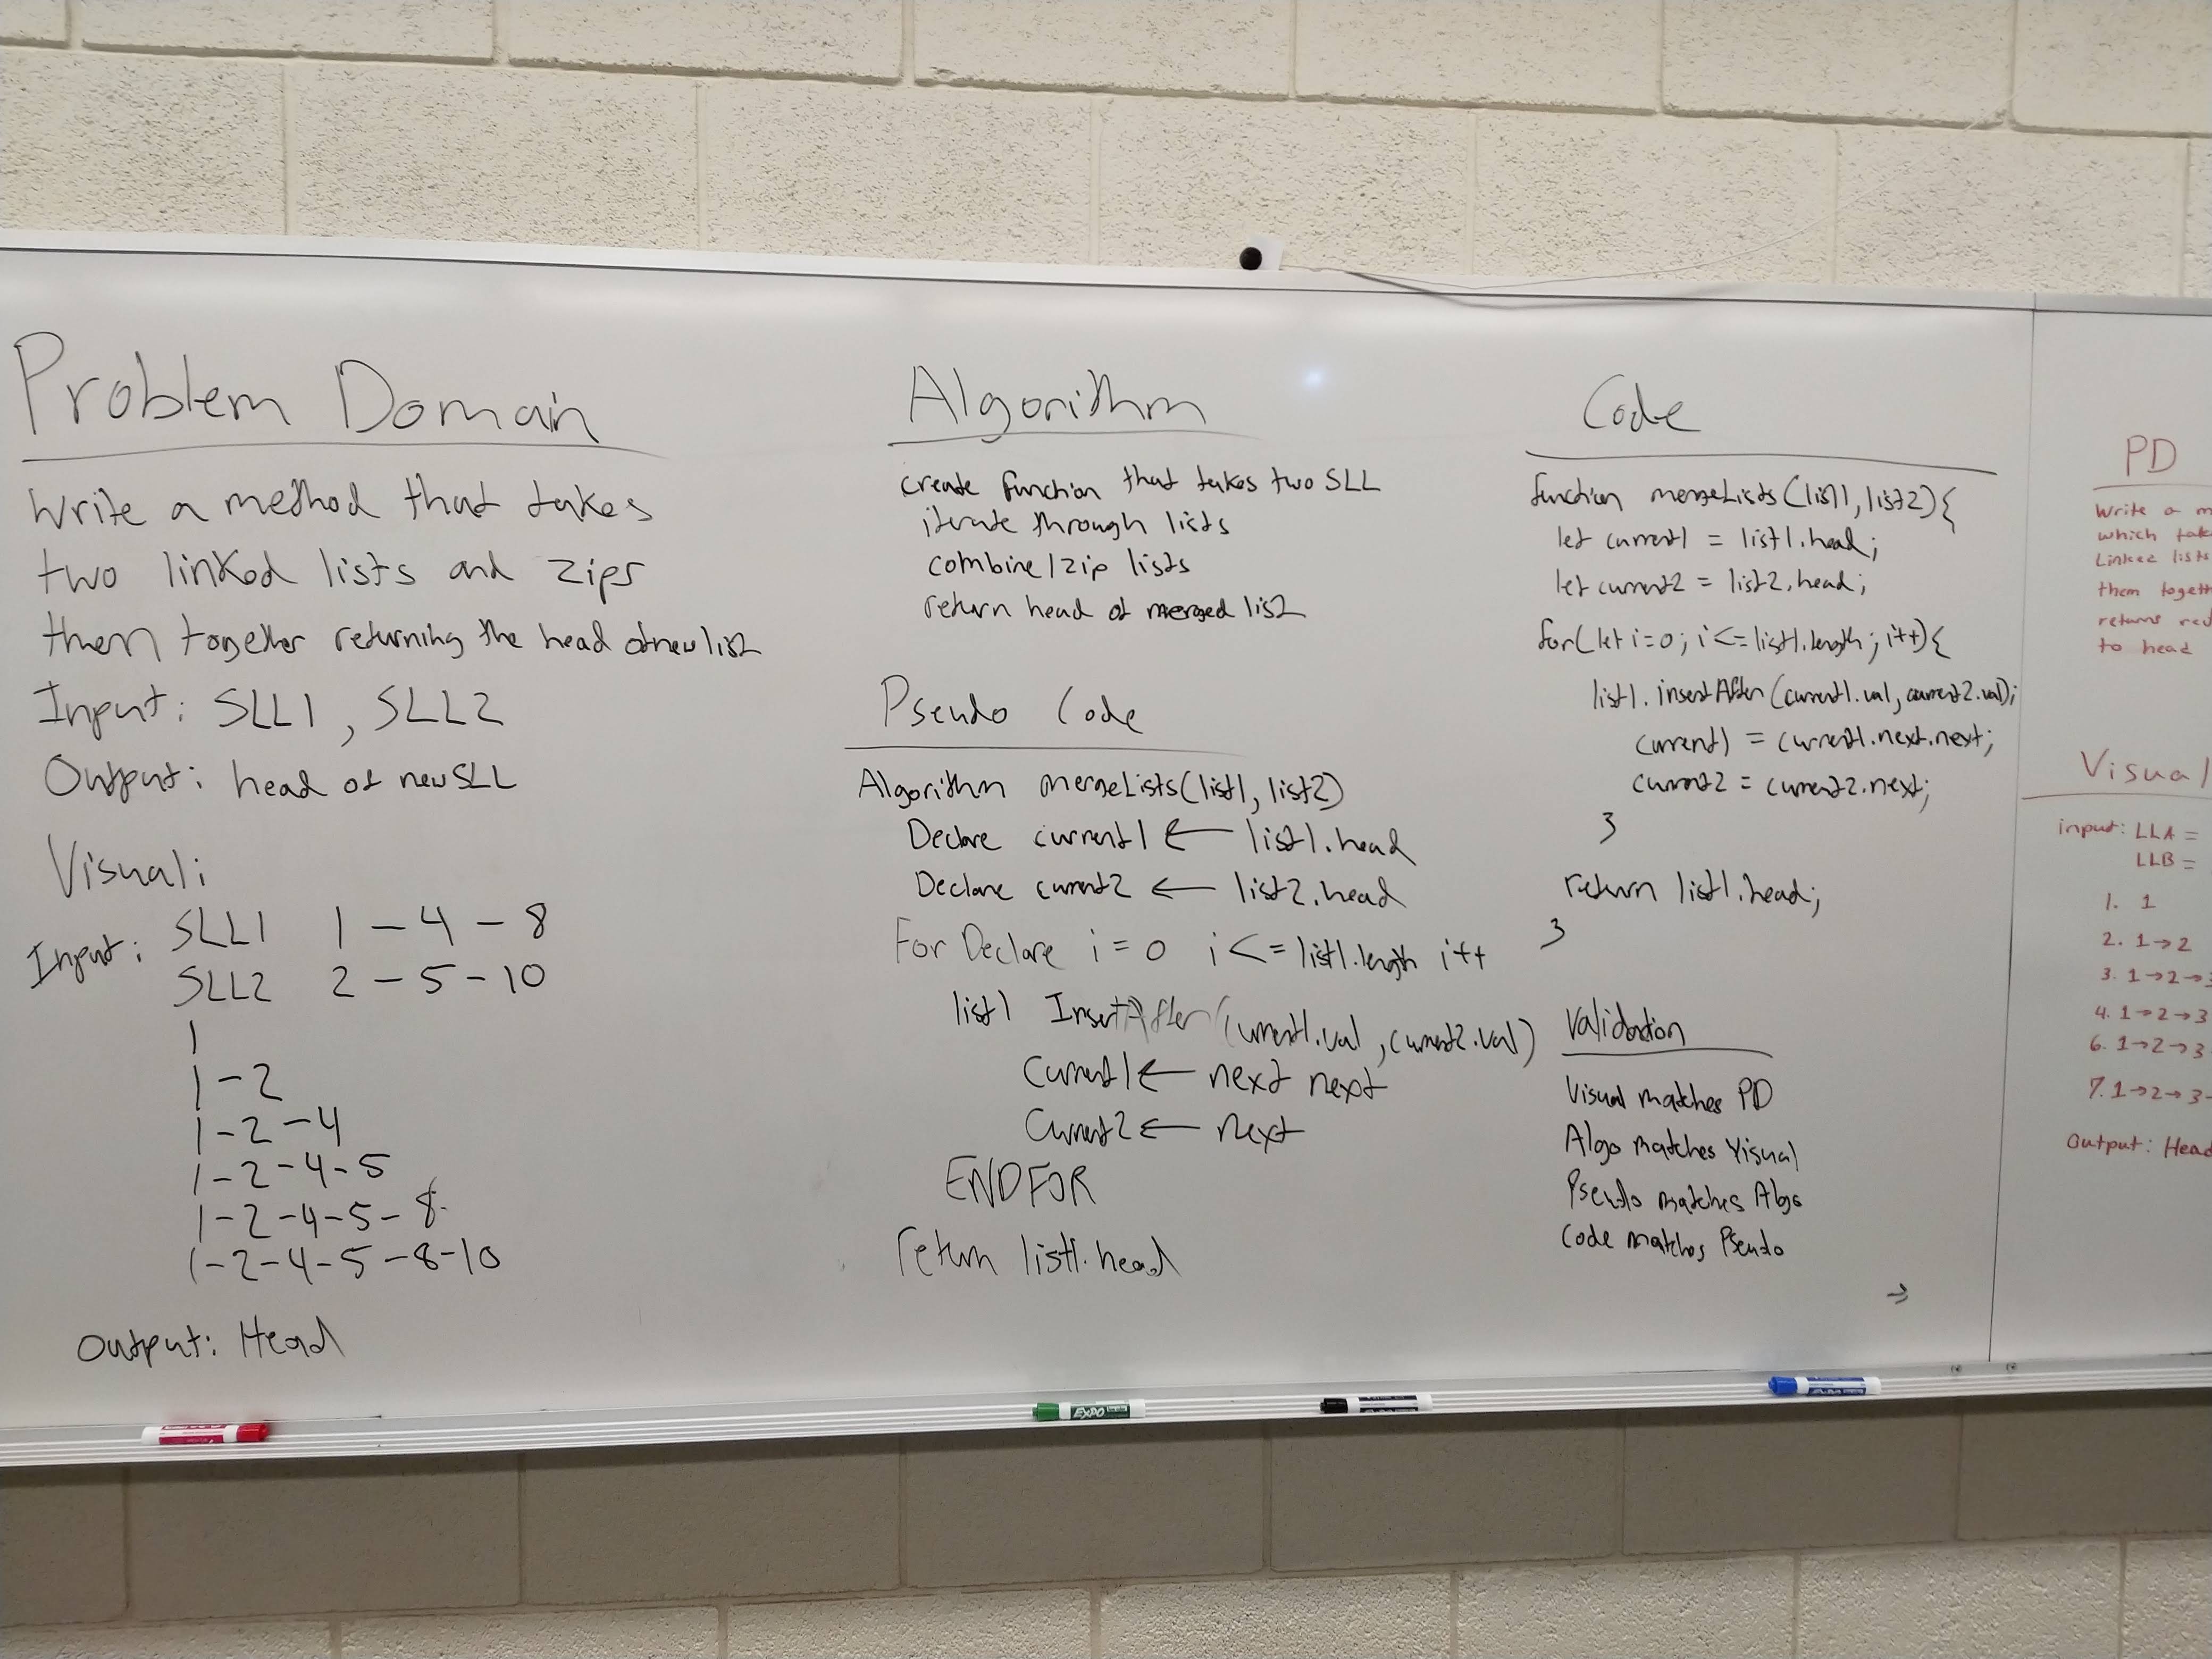 Problem Domain
Write a method that takes
two linked lists and zips
them together returning the head of new list
Input: SLL1, SLL2
Output: head of new SLL
Visual:
Input: SLL1 1 - 4 - 8
SLL2 2 - 5 - 10
1
1 - 2
1 - 2 - 4
1 - 2 - 4 - 5
1 - 2 - 4 - 5 - 8
1 - 2 - 4 - 5 - 8 - 10
Output: Head
Algorithm
create function that takes two SLL
iterate through lists
combine/zip lists
return head of merged list
Pseudo Code
Algorithm mergeLists(list1, list2)
Declare current1 ← list1.head
Declare current2 ← list2.head
For Declare i = 0 i <= list1.length i++
list1 InsertAfter(current1.val, current2.val)
Current1 ← next next
Current2 ← next
ENDFOR
return list1.head
Code
function mergeLists(list1, list2){
let current1 = list1.head;
let current2 = list2.head;
for(let i=0; i<=list1.length; i++){
list1.insertAfter(current1.val, current2.val);
current1 = current1.next.next;
current2 = current2.next;
}
return list1.head;
}
Validation
Visual matches PD
Algo matches Visual
Pseudo matches Algo
Code matches Pseudo
→
PD
Write a m
which tak
Linked lists
them togeth
returns
to head
Visual
input: LLA =
LLB =
1. 1
2. 1→2
3. 1→2→3
4. 1→2→3
6. 1→2→3
7. 1→2→3-
Output: Head
EXPO